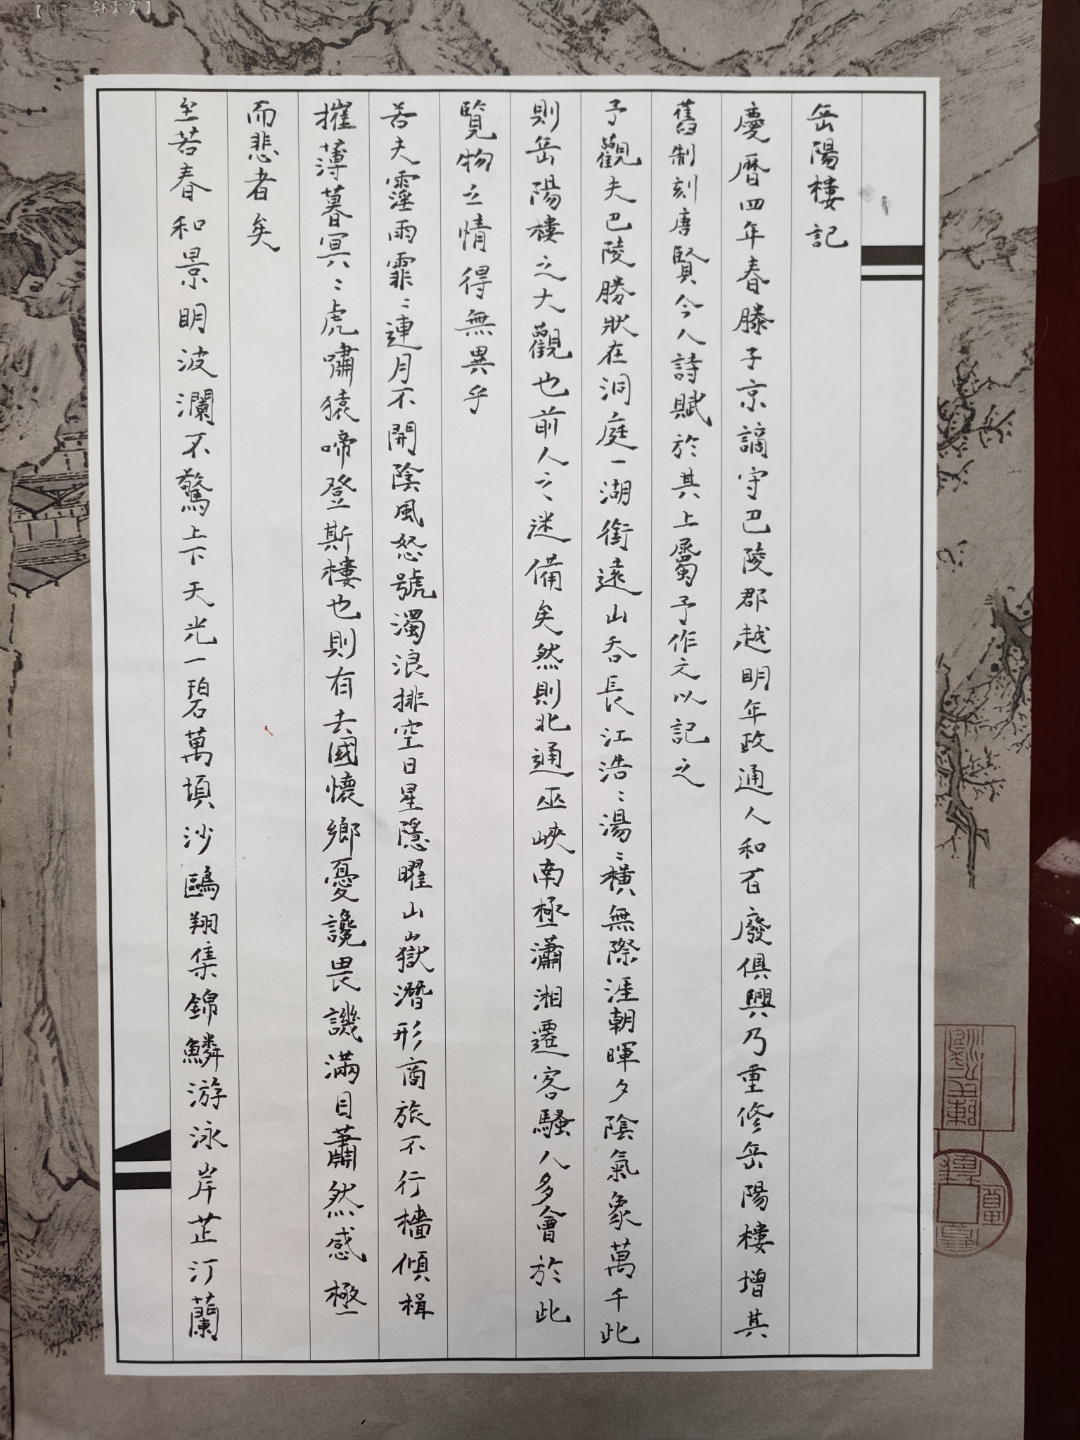 岳陽樓記
慶曆四年春滕子京謫守巴陵郡越明年政通人和百廢俱興乃重修岳陽樓增其
舊制刻唐賢今人詩賦於其上屬予作文以記之
予觀夫巴陵勝狀在洞庭一湖銜遠山吞長江浩〻湯〻橫無際涯朝暉夕陰氣象萬千此
則岳陽樓之大觀也前人之述備矣然則北通巫峽南極瀟湘遷客騷人多會於此
覽物之情得無異乎
若夫霪雨霏〻連月不開陰風怒號濁浪排空日星隱曜山嶽潛形商旅不行檣傾楫
摧薄暮冥〻虎嘯猿啼登斯樓也則有去國懷鄉憂讒畏譏滿目蕭然感極
而悲者矣
至若春和景明波瀾不驚上下天光一碧萬頃沙鷗翔集錦鱗游泳岸芷汀蘭